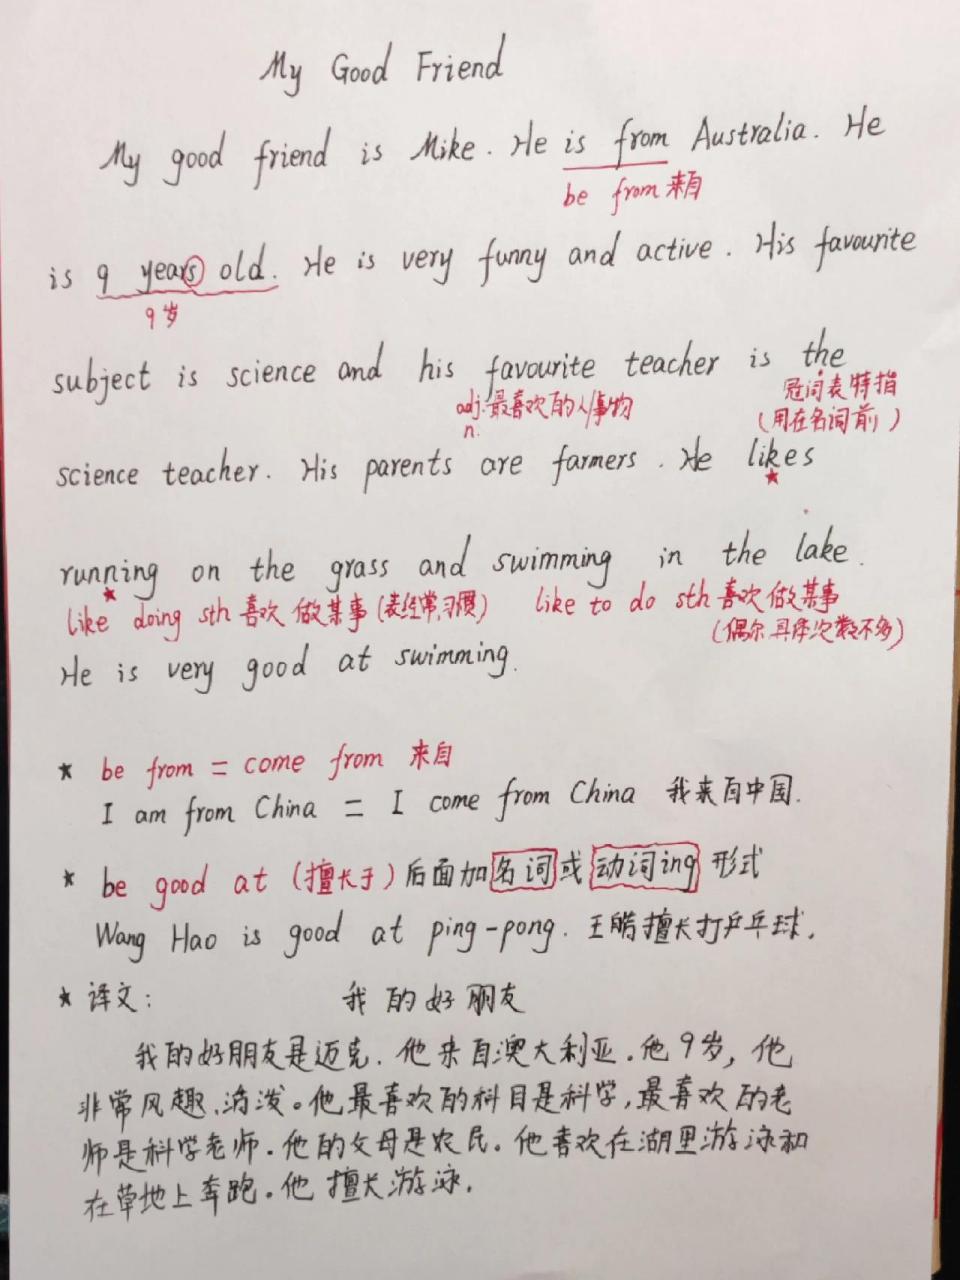 My Good Friend
My good friend is Mike. He is from Australia. He
be from 来自
is 9 years old. He is very funny and active. His favourite
9岁
subject is science and his favourite teacher is the
adj. 最喜欢的人/事物
n.
冠词表特指
(用在名词前)
science teacher. His parents are farmers. He likes
★
running on the grass and swimming in the lake.
★
like doing sth 喜欢做某事(表经常,习惯) like to do sth 喜欢做某事
(偶尔,具体次数不多)
He is very good at swimming.
★ be from = come from 来自
I am from China = I come from China 我来自中国.
★ be good at (擅长于) 后面加名词或动词ing形式
Wang Hao is good at ping-pong. 王皓擅长打乒乓球.
★ 译文: 我的好朋友
我的好朋友是迈克.他来自澳大利亚.他9岁,他
非常风趣、活泼。他最喜欢的科目是科学,最喜欢的老
师是科学老师.他的父母是农民。他喜欢在湖里游泳和
在草地上奔跑。他擅长游泳.